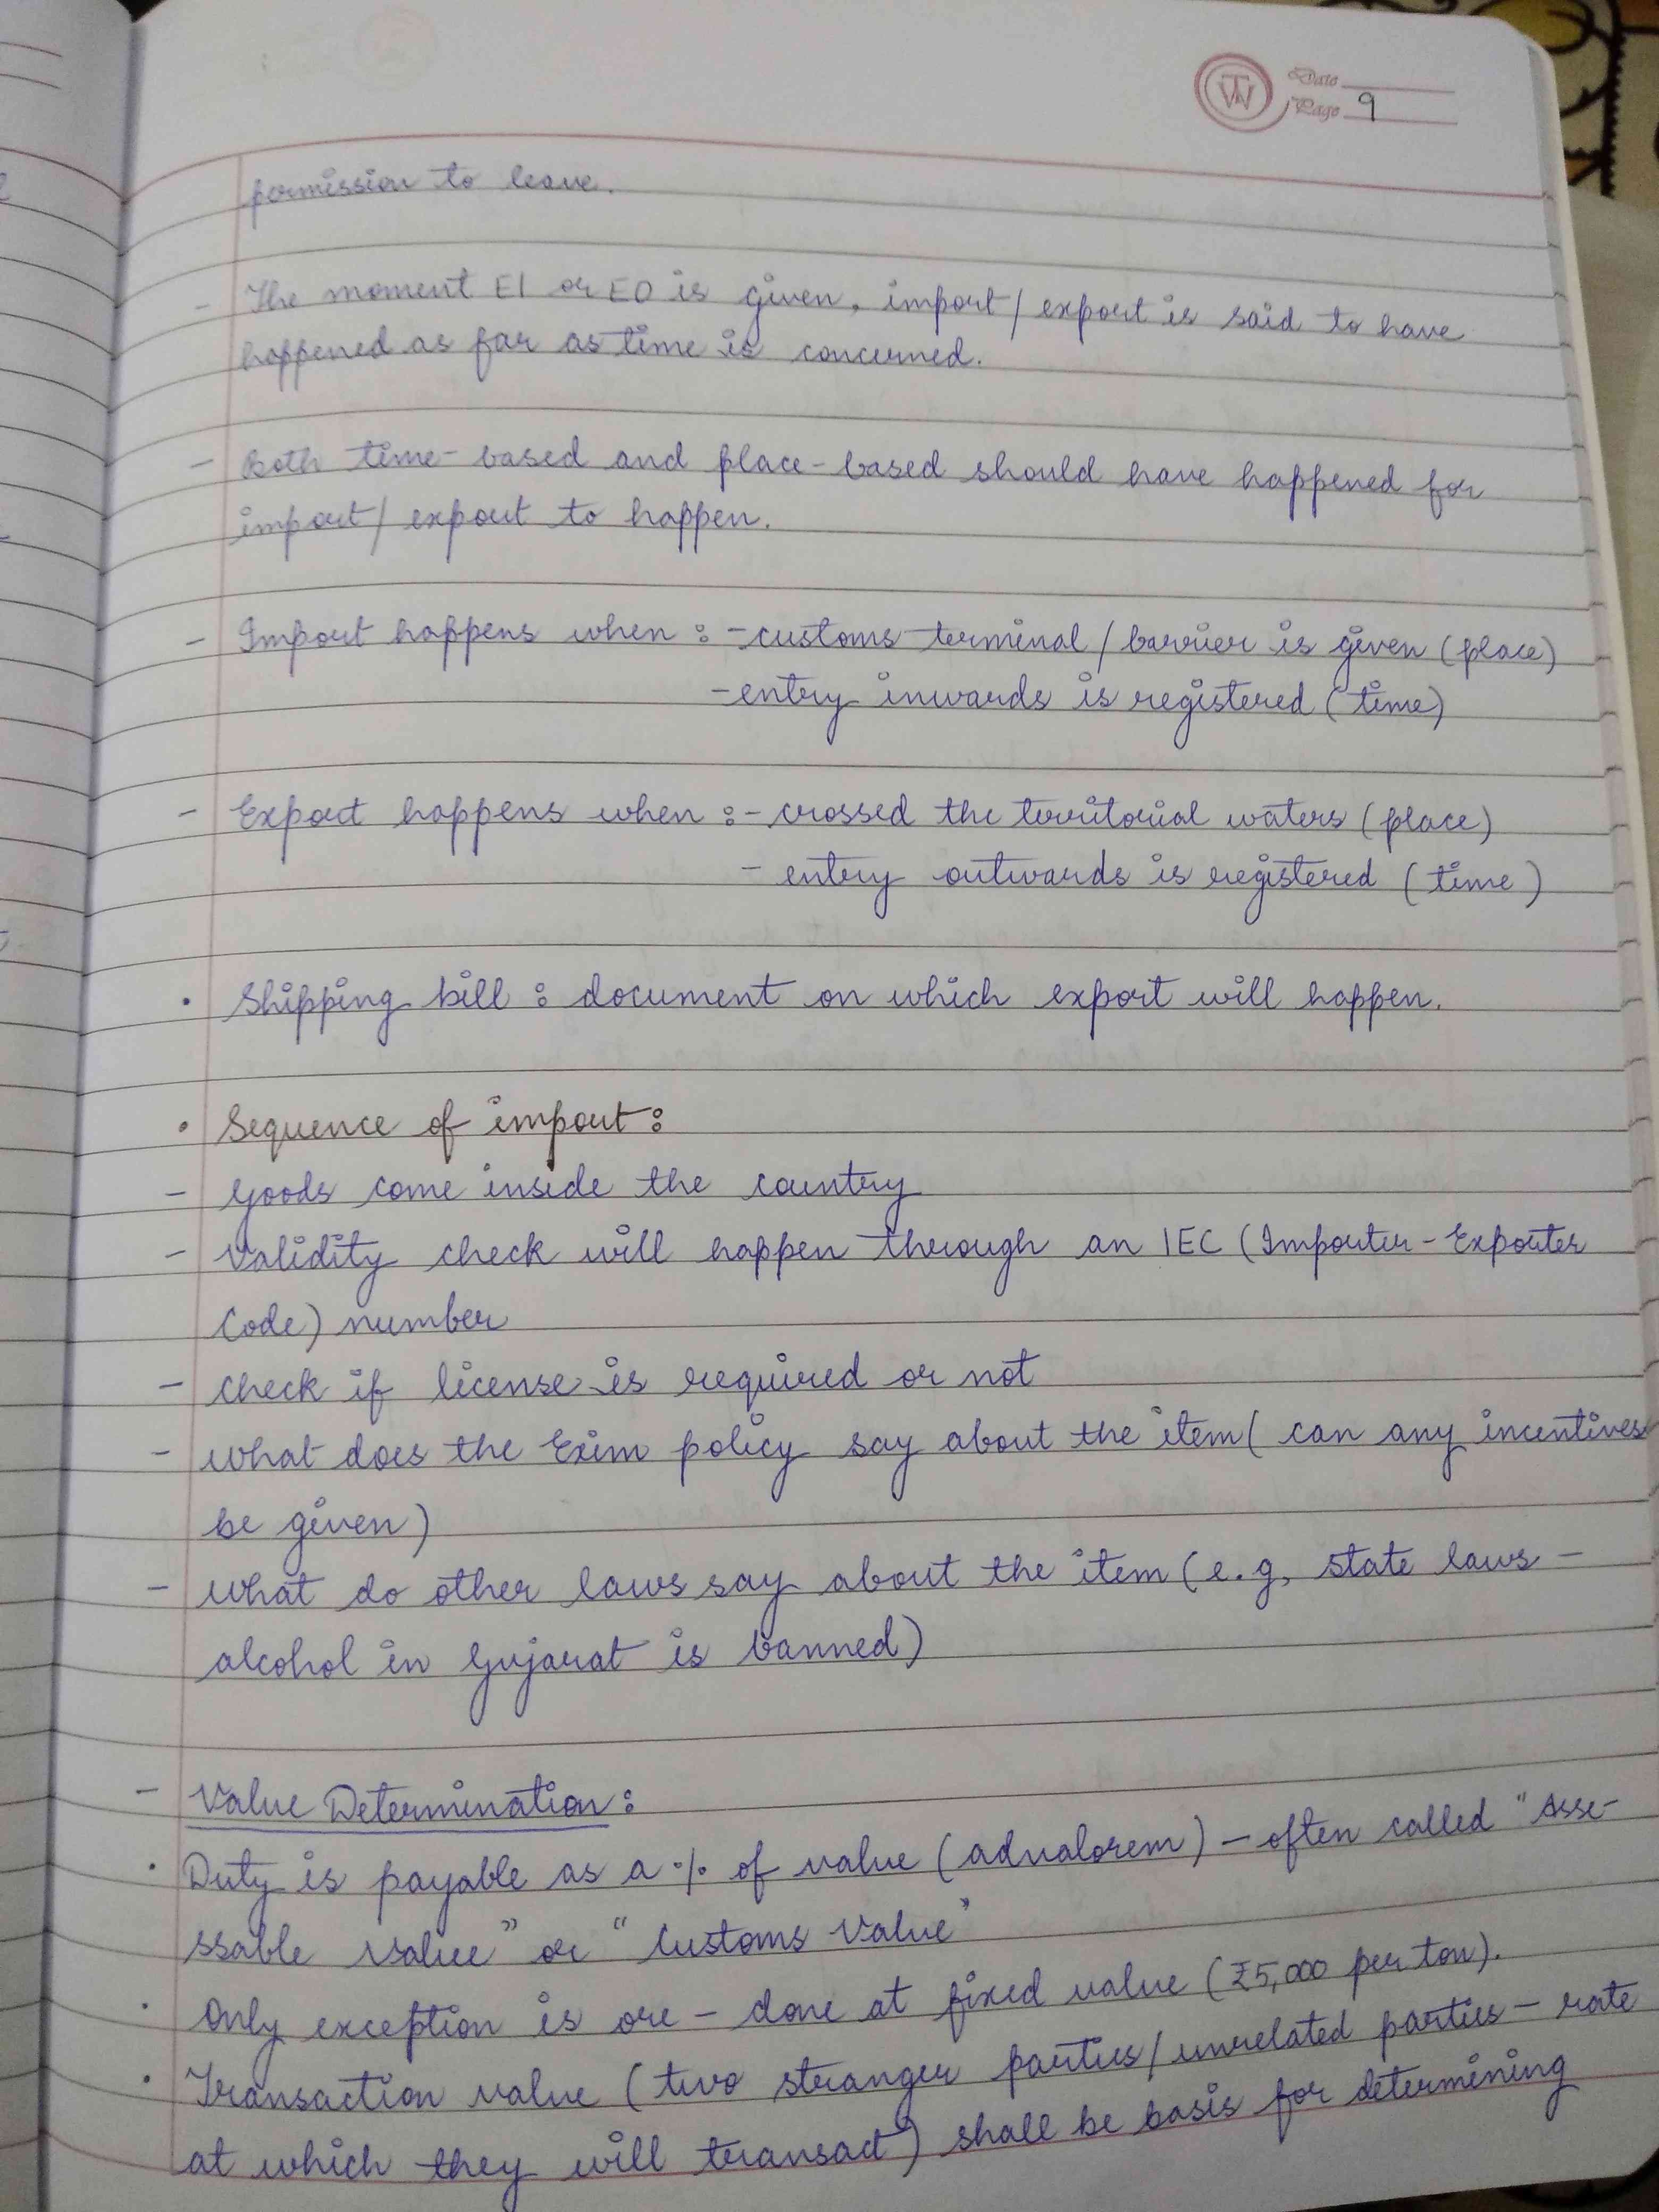 Date
Page 9
permission to leave.
- The moment EI or EO is given, import/export is said to have
happened as far as time is concerned.
- Both time-based and place-based should have happened for
import/export to happen.
- Import happens when : - customs terminal/barrier is given (place)
- entry inwards is registered (time)
- Export happens when : - crossed the territorial waters (place)
- entry outwards is registered (time)
• Shipping bill : document on which export will happen.
• Sequence of import :
- goods come inside the country
- Validity check will happen through an IEC (Importer-Exporter
Code) number
- check if license is required or not
- what does the Exim policy say about the item (can any incentives
be given)
- what do other laws say about the item (e.g, state laws -
alcohol in Gujarat is banned)
- Value Determination :
• Duty is payable as a % of value (advalorem) - often called "Asse-
ssable value" or "Customs Value"
• Only exception is ore - done at fixed value (₹5,000 per ton).
• Transaction value (two stranger parties/unrelated parties - rate
at which they will transact) shall be basis for determining